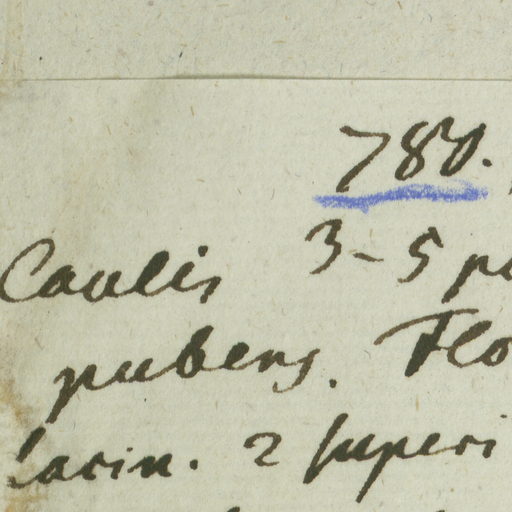 780.
Caulis 3-5 pe
pubens. Flo
lacin. 2 superi